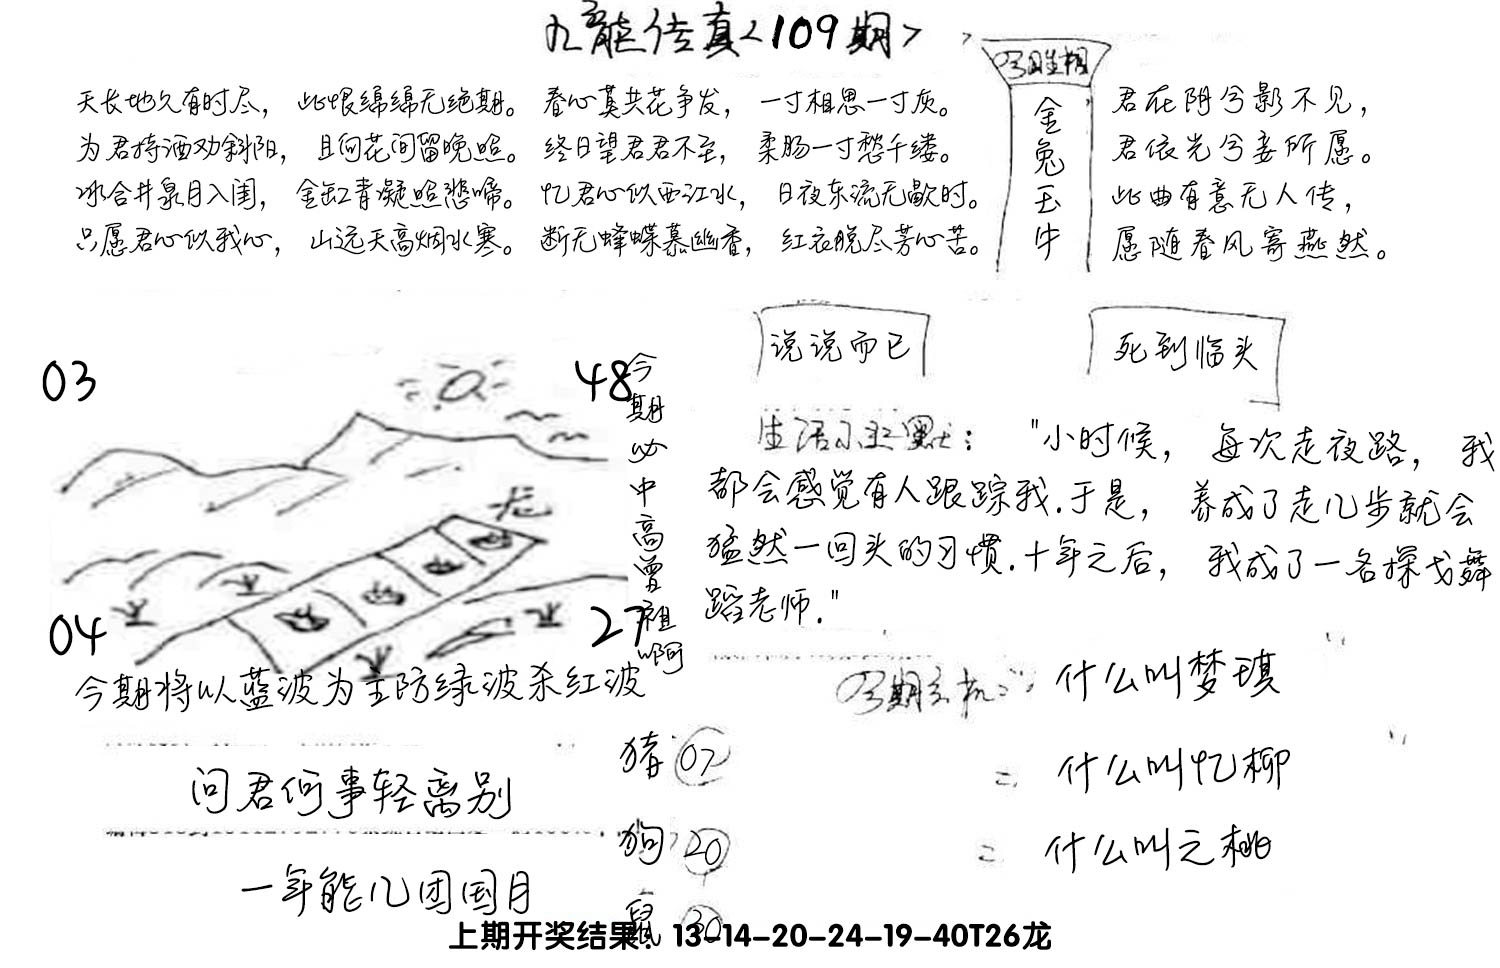 九龙传真<109期>
今日生相
金兔玉牛
天长地久有时尽， 此恨绵绵无绝期。 春心莫共花争发， 一寸相思一寸灰。
为君持酒劝斜阳， 且向花间留晚照。 终日望君君不至， 柔肠一寸愁千缕。
冰合井泉月入闺， 金缸青凝照悲啼。 忆君心似西江水， 日夜东流无歇时。
只愿君心似我心， 山远天高烟水寒。 断无蜂蝶慕幽香， 红衣脱尽芳心苦。
君在阴兮影不见，
君依光兮妾所愿。
此曲有意无人传，
愿随春风寄燕然。
说说而已
死到临头
03
48
04
27
龙
今期必中高曾祖啊
今期将以蓝波为主防绿波杀红波
生活小幽默： "小时候， 每次走夜路， 我
都会感觉有人跟踪我.于是， 养成了走几步就会
猛然一回头的习惯.十年之后， 我成了一名探戈舞
蹈老师."
今期玄机： 什么叫梦琪
什么叫忆柳
什么叫之桃
问君何事轻离别
一年能几团国月
猪 07
狗 20
鼠 30
上期开奖结果：13-14-20-24-19-40T26龙